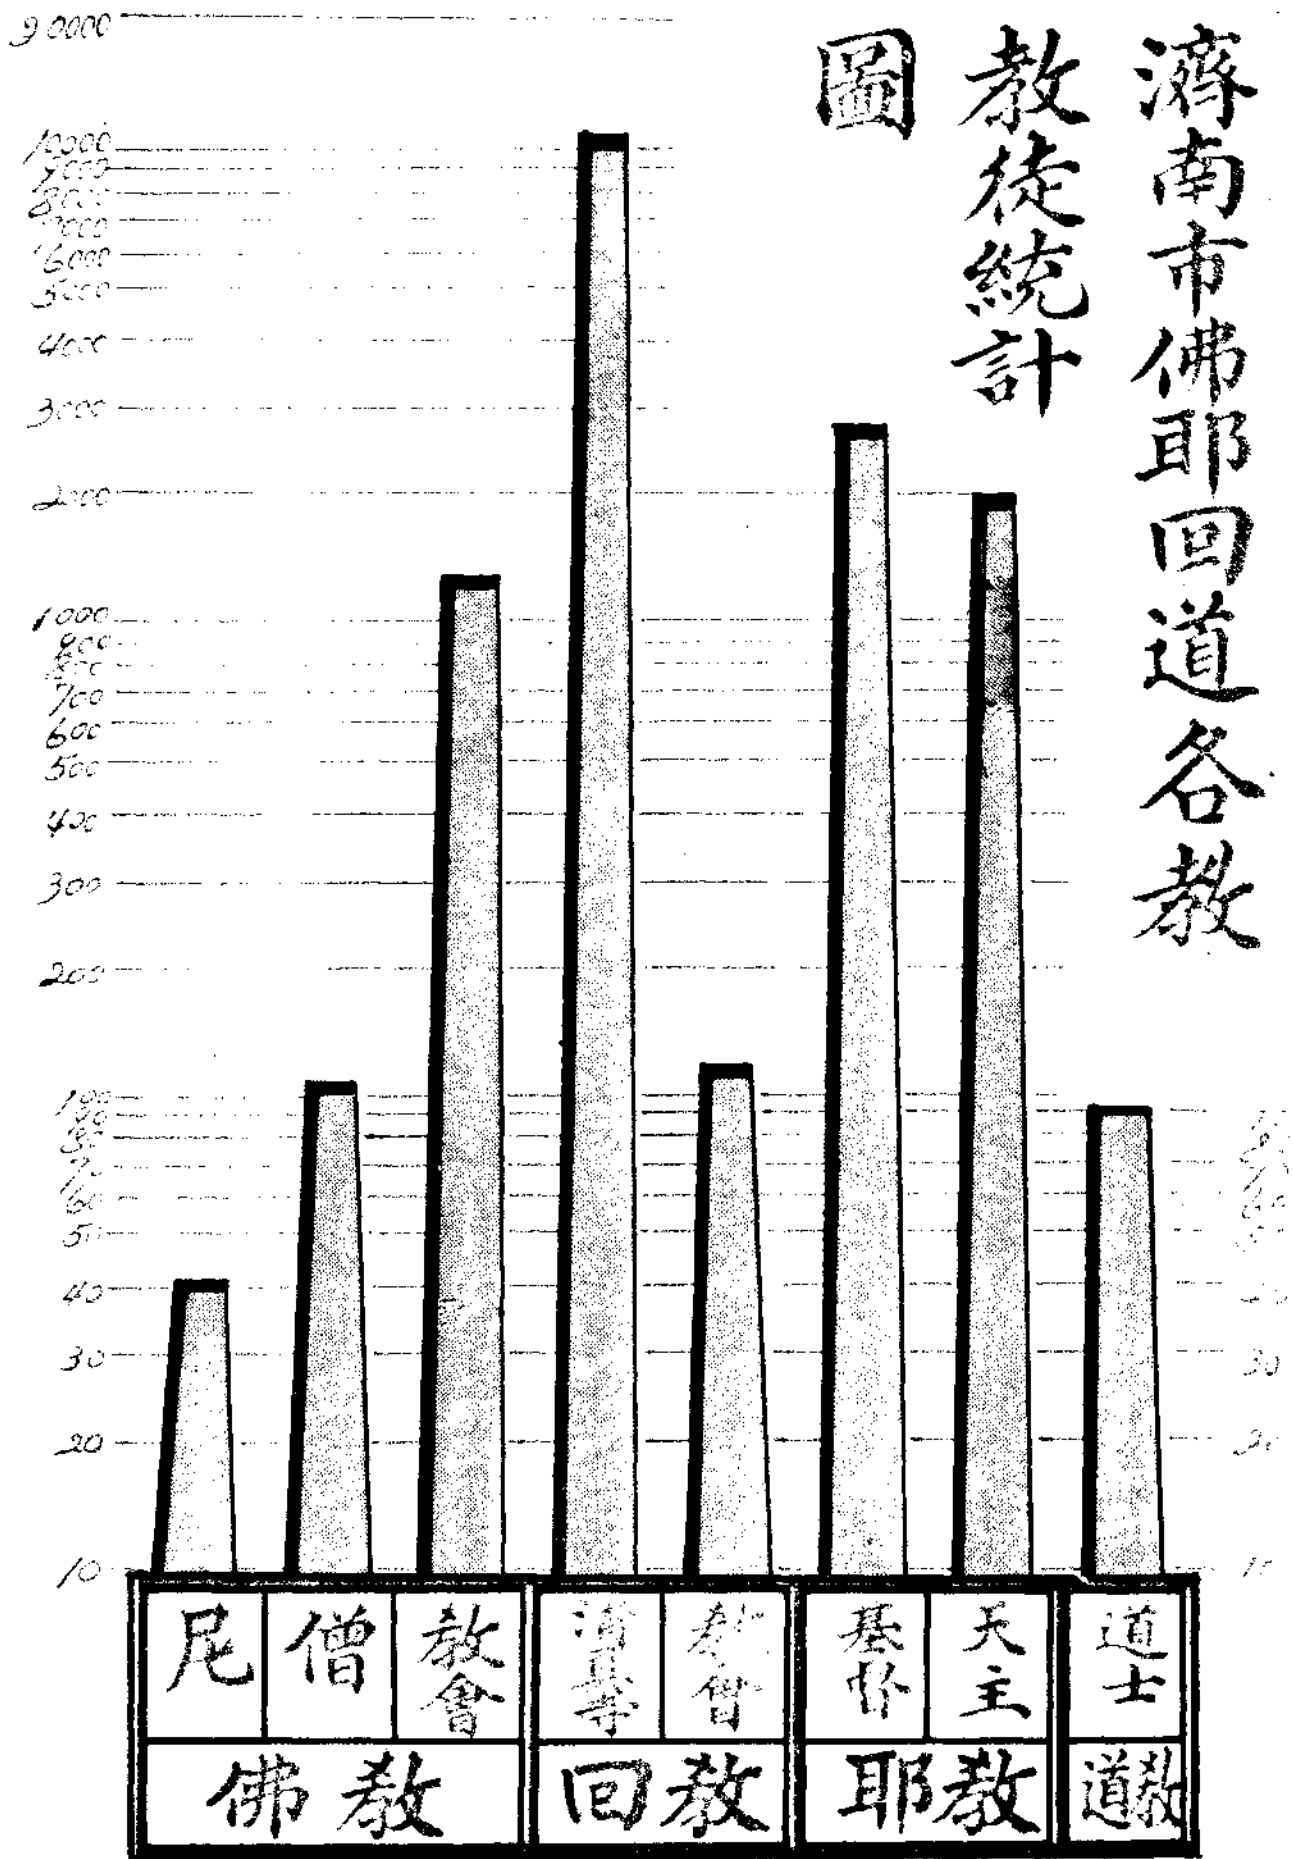 濟南市佛耶回道各教
教徒統計
圖
90000
10000
9000
8000
7000
6000
5000
4000
3000
2000
1000
900
800
700
600
500
400
300
200
100
90
80
70
60
50
40
30
20
10
30
尼
僧
教會
清真寺
教會
基督
天主
道士
佛教
回教
耶教
道教